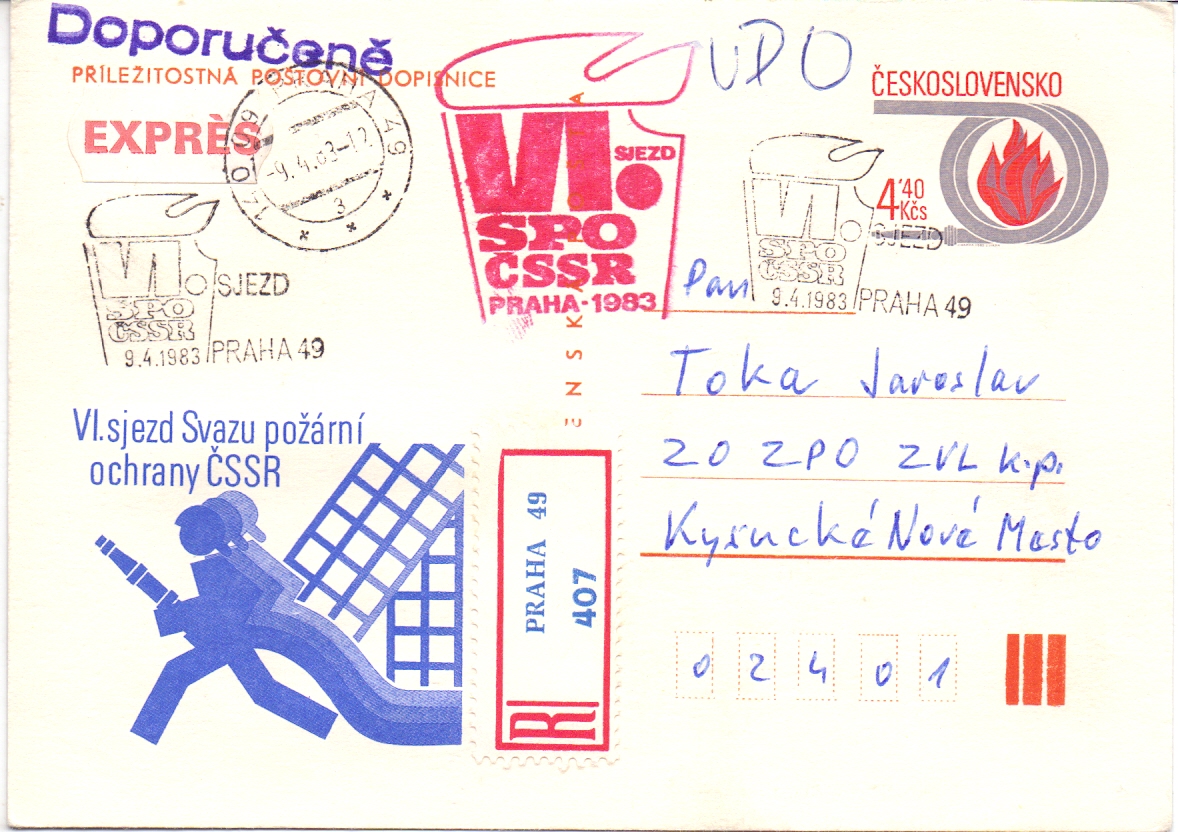 Doporučeně
UPO
PŘÍLEŽITOSTNÁ POŠTOVNÍ DOPISNICE
ČESKOSLOVENSKO
EXPRÈS
PRAHA 49
-9.4.83-12
3
4'40
Kčs
VI. SJEZD
SPO
ČSSR
PRAHA·1983
VI. SJEZD
SPO
ČSSR
9.4.1983 PRAHA 49
VI. SJEZD
SPO
ČSSR
9.4.1983 PRAHA 49
Pan
Toka Jaroslav
ZO ZPO ZVL k.p.
Kysucké Nové Mesto
VI. sjezd Svazu požární
ochrany ČSSR
PRAHA 49
407
R
02401